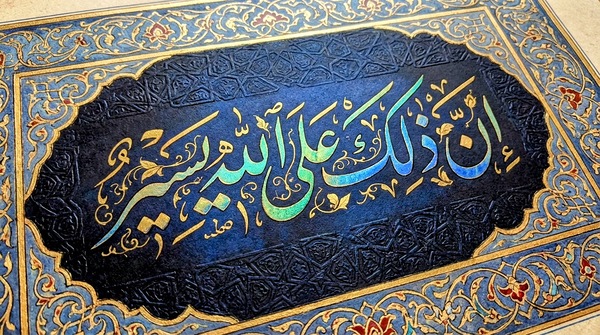 إِنَّ ذٰلِكَ عَلَى اللّٰهِ يَسِيرٌ